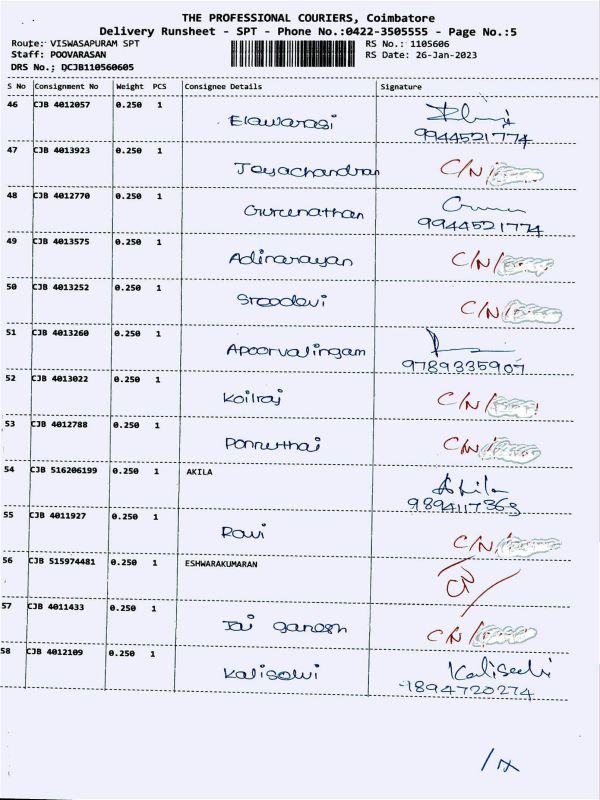 THE PROFESSIONAL COURIERS, Coimbatore
Delivery Runsheet - SPT - Phone No.:0422-3505555 - Page No.:5
Route: VISWASAPURAM SPT RS No.: 1105606
Staff: POOVARASAN RS Date: 26-Jan-2023
DRS No.; DCJB110560605
S No Consignment No Weight PCS Consignee Details Signature
46 CJB 4012057 0.250 1
Elawarasi 9944521774
47 CJB 4013923 0.250 1
Jeyachandran C/N/
48 CJB 4012770 0.250 1
Gurunathan 9944521774
49 CJB 4013575 0.250 1
Adinarayan C/N/
50 CJB 4013252 0.250 1
Sreedevi C/N/
51 CJB 4013260 0.250 1
Apoorvalingam 9789335907
52 CJB 4013022 0.250 1
Koilraj C/N/
53 CJB 4012788 0.250 1
Ponnuthai C/N/
54 CJB 516206199 0.250 1 AKILA Akila
9894117363
55 CJB 4011927 0.250 1
Ravi C/N/
56 CJB 515974481 0.250 1 ESHWARAKUMARAN
57 CJB 4011433 0.250 1
Jai Ganesh C/N/
58 CJB 4012109 0.250 1
Kaliselvi 1894720274